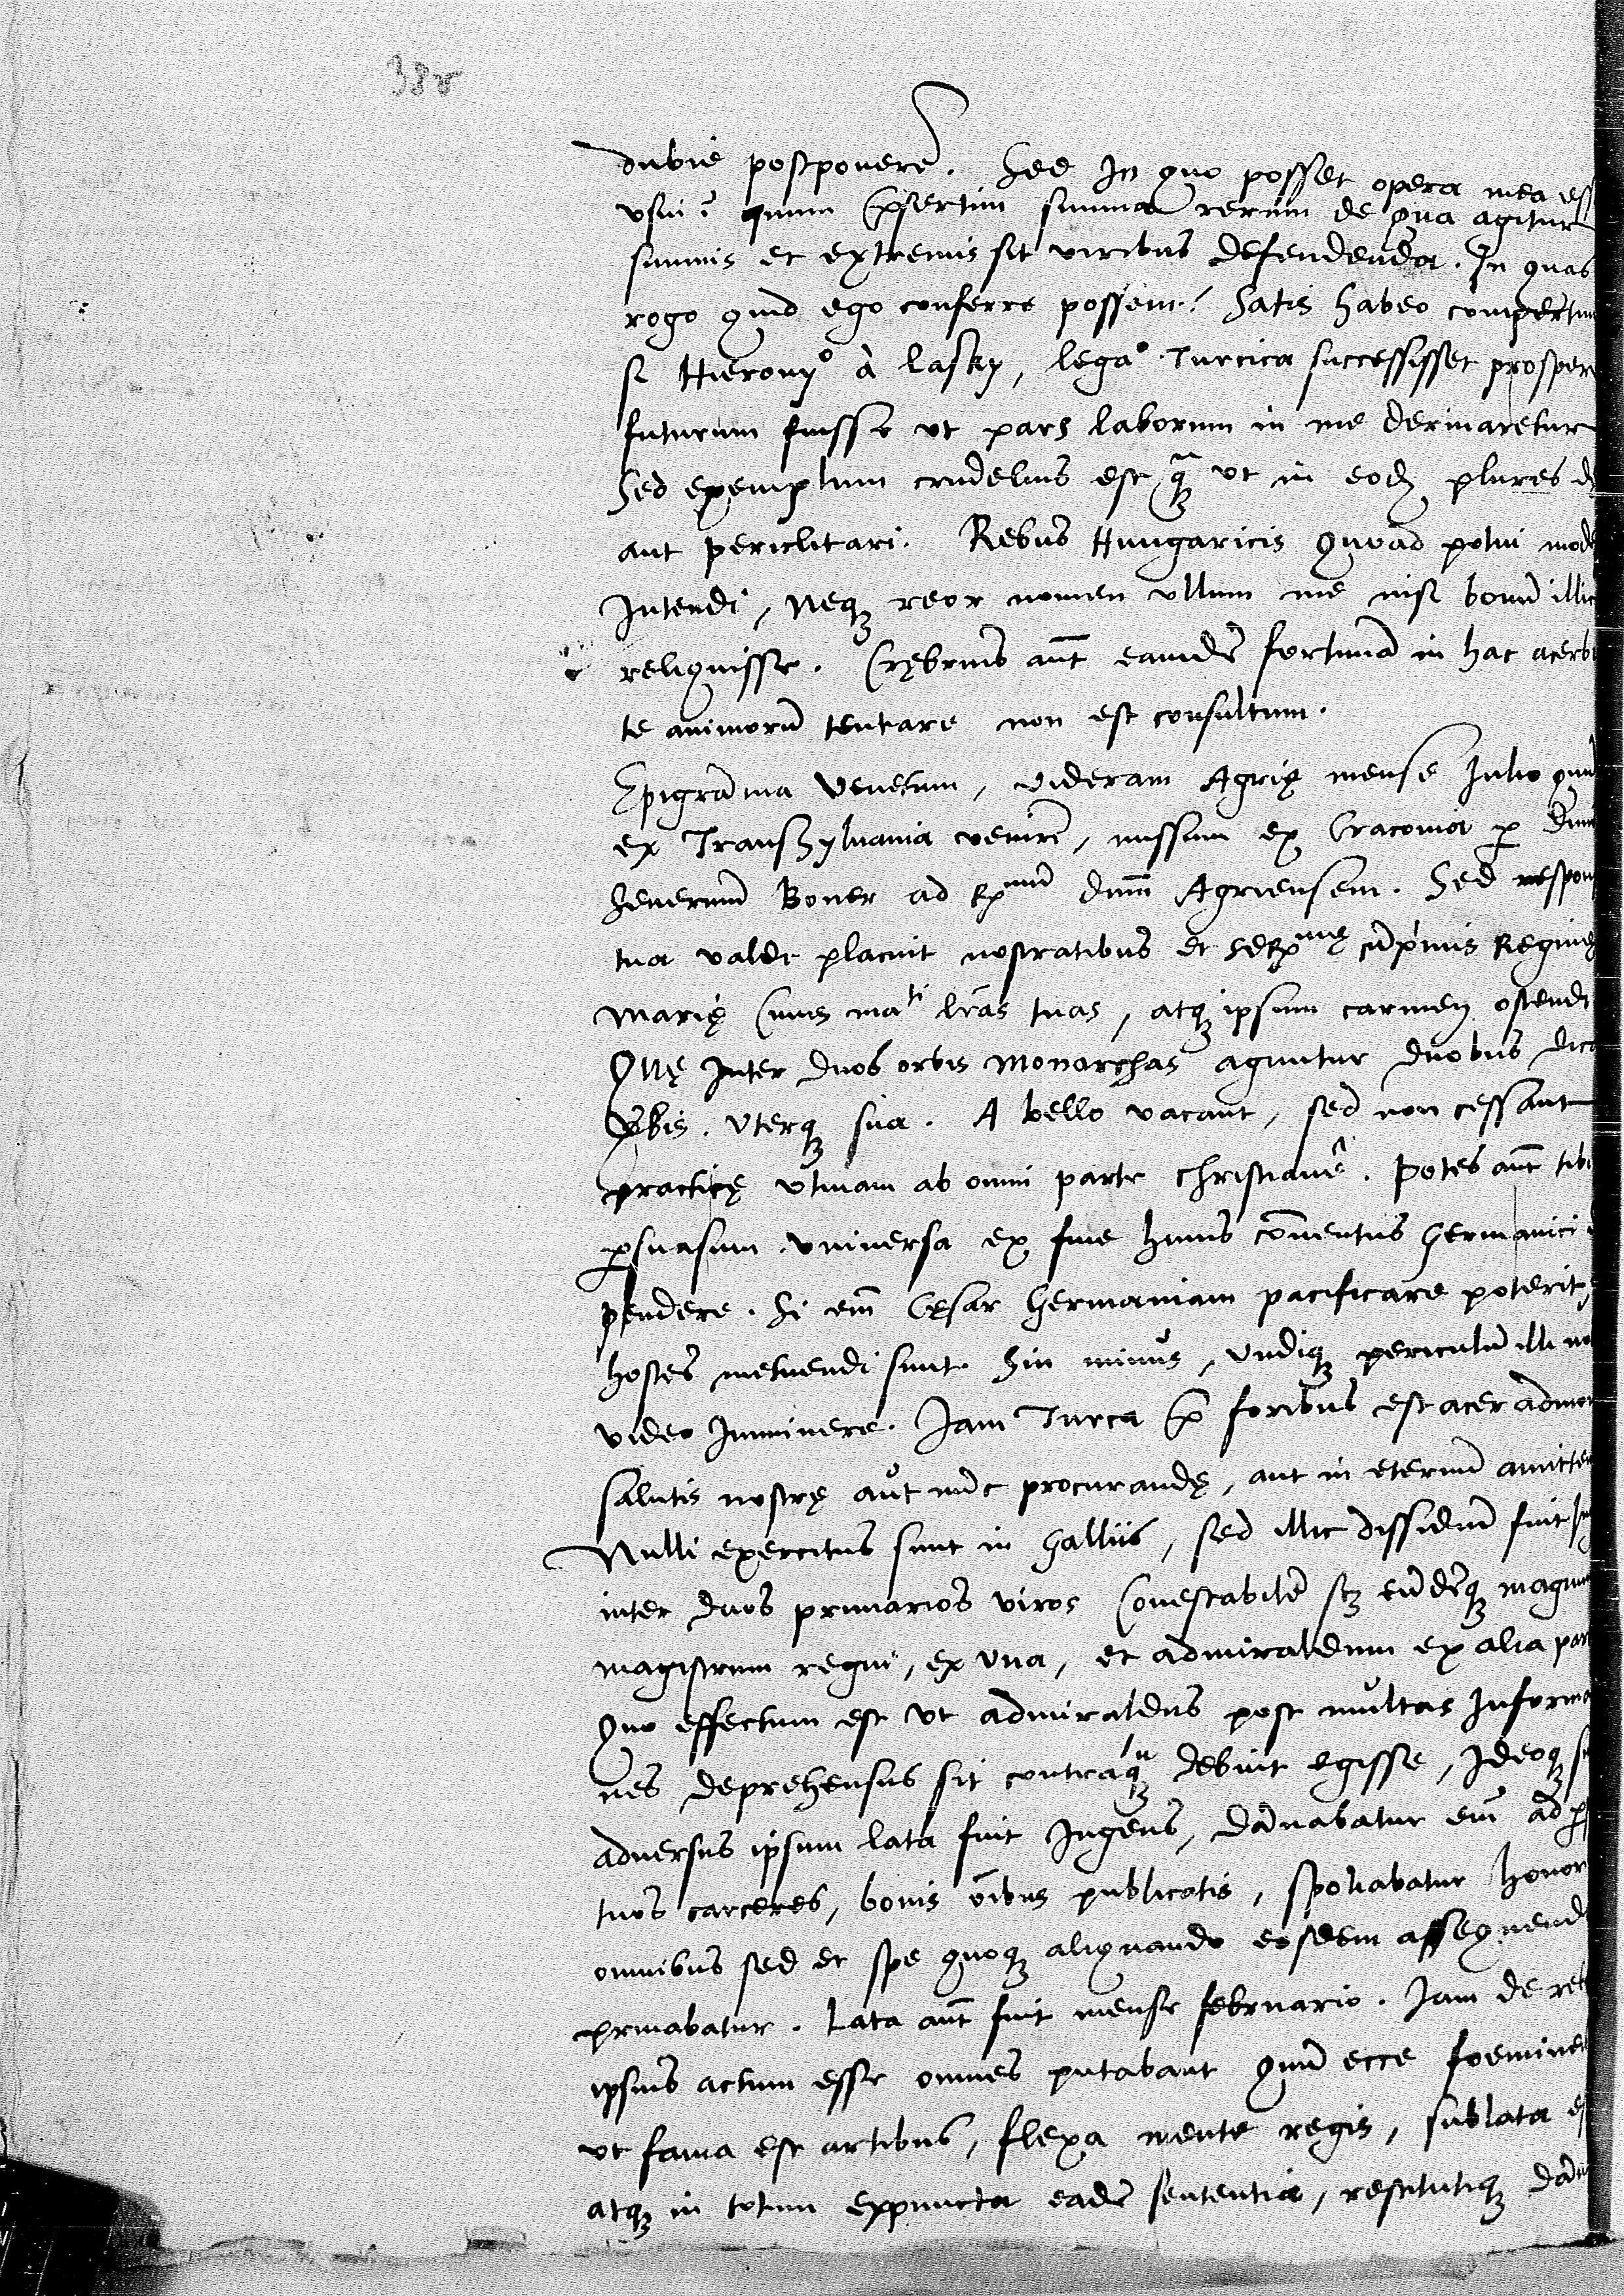 388
dubie postponerem. Sed In quo posset opera mea ess
vsui? quum p̄sertim summa rerum de qua agitur
summis et extremis sit viribus defendenda. In quas
rogo quid ego conferre possem? Satis habeo compertum
si Hieronyº à lasky, legaº Turcica successisset prosper
futurum fuisse vt pars laborum in me deriuaretur
Sed exemplum crudelius est q̃ vt in eodē plures
aut periclitari. Rebus Hungaricis quoad potui mode
Intendi, Neqȝ reor nomen vllum me nisi bonū illic
reliquisse. Crębrius aūt eamdē fortunā in hac acerbi
te animorū tentare non est consultum.
Epigrāma Venetum, videram Agrię mense Julio quū
ex Transzyluania venirē, missum ex Cracouia p̱ dnm
Seuerinū Boner ad Rx̄mum dnm̄ Agriensem. Sed respon
tua valde placuit nostratibus et Serx̄mę cūprimis Reginę
Marię Cuius maᵗⁱ lr̄as tuas, atqȝ ipsum carmen ostendi
Quę Inter duos orbis Monarchas aguntur duobus dica
v̄bis. Vterqȝ sua. A bello vacant, sed non cessant
practicę vtinam ab omni parte Christianę. Potes aūt tibi
p̱suasum. vniuersa ex fine huius cōuentus Germanici
pendere. Si em̄ Cęsar Germaniam pacificare poterit,
hostes metuendi sunt. Sin minus, Vndiqȝ periculū illi
video Imminere. Jam Turca p̄ foribus est acer admo
salutis nostrę aut nūc procurandę, aut in eternū amitten
Nulli exercitus sunt in Galliis, sed illic dissidiū fuit
inter duos primarios viros Conestabilē sȝ eūdēqȝ magnum
magistrum regni, ex vna, et admiraldum ex alia par
Quo effectum est vt admiraldus post multas Informa
nes deprehensus sit contraq̃ debuit egisse, Ideoqȝ
aduersus ipsum lata fuit Ingens, dānabatur em̄ ad p̱
tuos carceres, bonis oībus publicatis, spoliabatur honor
omnibus sed et spe quoqȝ aliquando eosdem assequendi
priuabatur. Lata aūt fuit mense februario. Jam de reb
ipsius actum esse omnes putabant quū ecce foemineis
vt fama est artibus, flexa mente regis, sublata es
atqȝ in totum expuncta eadē sententia, restitutiqȝ